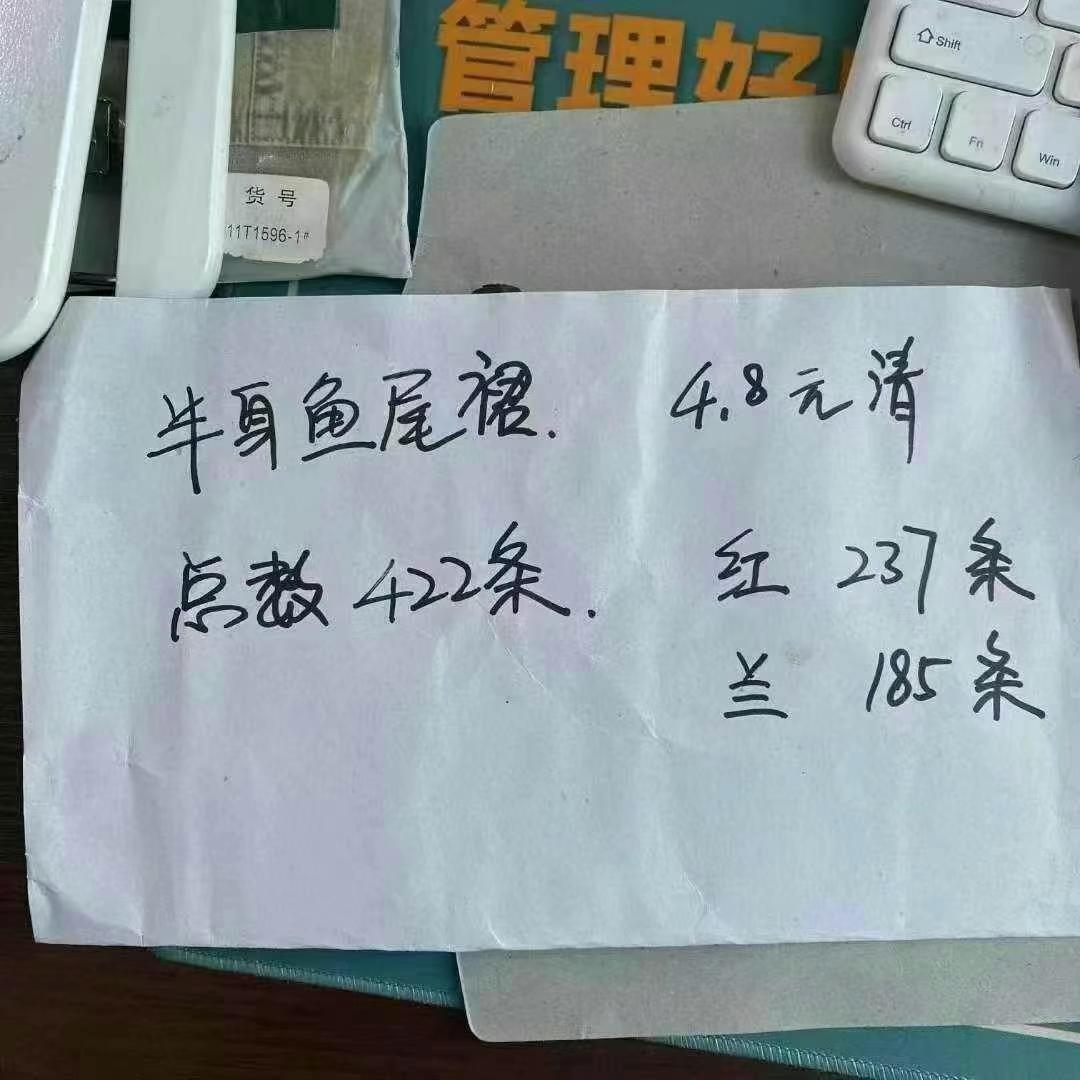 管理好
Shift
Ctrl
Fn
Win
货号
11T1596-1#
半身鱼尾裙. 4.8元清
点数422条. 红 237条
兰 185条